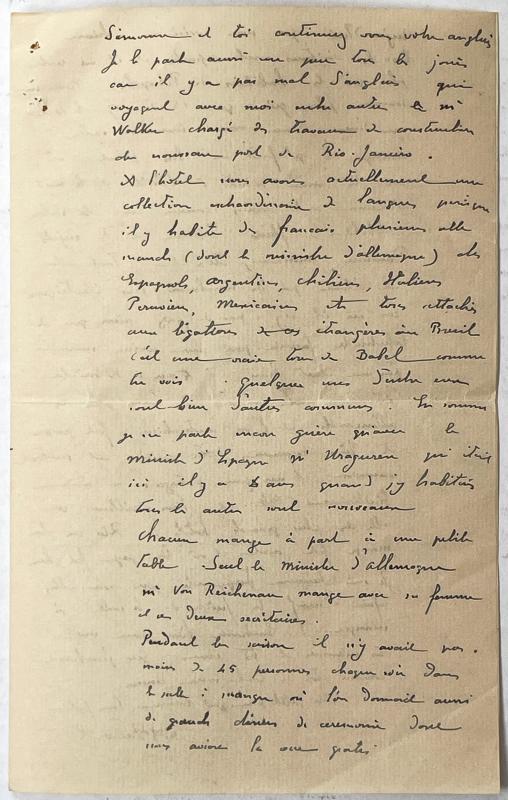 Simonne et toi continuez vous votre anglais
Je le parle aussi un peu tous les jours
car il y a pas mal d'anglais qui
voyagent avec moi entre autre le Mr
Walker chargé des travaux de construction
du nouveau port de Rio-Janeiro.
A l'hotel nous avons actuellement une
collection extraordinaire de langues puisque
il y habite des français plusieurs alle
mands (dont le ministre d'allemagne) des
Espagnols, argentins, chiliens, Italiens
Peruviens, Mexicains etc tous attachés
aux légations étrangères au Bresil
c'est une vraie tour de Babel comme
tu vois. quelques uns d'entre eux
sont bien d'autres communs. En somme
je ne parle encore guère qu'avec le
Ministre d'Espagne Mr qui était
ici il y a 2 ans quand j'y habitais
tous les autres sont nouveaux
Chacun mange à part à une petite
table. Seul le Ministre d'allemagne
Mr Von Reichenau mange avec sa femme
et ses deux secrétaires.
Pendant la saison il n'y avait pas.
moins de 45 personnes chaque soir dans
la salle à manger où l'on donnait aussi
de grands diners de ceremonie dont
nous avions la vue gratis